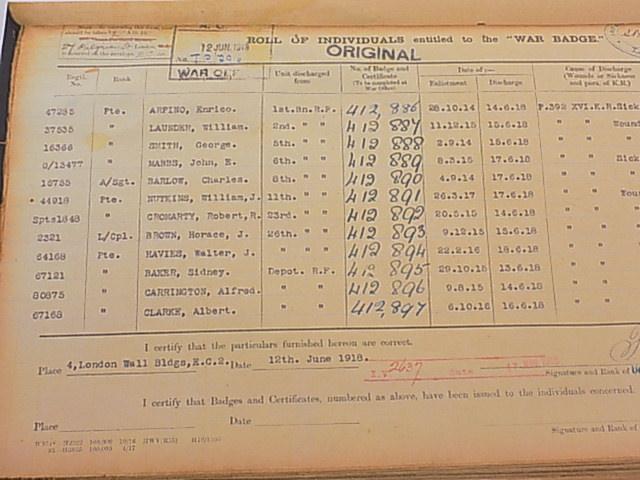 12 JUN. 1918
WAR OF
ROLL OF INDIVIDUALS entitled to the "WAR BADGE."
ORIGINAL
Regtl. No. Rank Unit discharged from No. of Badge and Certificate (To be completed at War Office) Date of :— Enlistment Discharge Cause of Discharge (Wounds or Sickness and para. of K.R.)
47285 Pte. ARPINO, Enrico. 1st.Bn.R.F. 412,886 28.10.14 14.6.18 P.392 XVI.K.R.Sick
37535 " LAUNDER, William. 2nd. " " 412 887 11.12.15 15.6.18 " " Wound
16366 " SMITH, George. 5th. " " 412 888 2.9.14 15.6.18 " "
G/13477 " MABBS, John, E. 6th. " " 412 889 8.3.15 17.6.18 " " Sick
16755 A/Sgt. BARLOW, Charles. 8th. " " 412 890 4.9.14 17.6.18 " "
44918 Pte. NUTKINS, William,J. 11th. " " 412 891 26.3.17 17.6.18 " " Wound
Spts1848 " CROMARTY, Robert,R. 23rd. " " 412 892 20.5.15 14.6.18 " "
2321 L/Cpl. BROWN, Horace, J. 26th. " " 412 893 9.12.15 15.6.18 " "
64168 Pte. HAVIES, Walter, J. " " " 412 894 22.2.16 18.6.18 " "
67121 " BAKER, Sidney. Depot. R.F. 412 895 29.10.15 13.6.18 " "
80875 " CARRINGTON, Alfred. " " 412 896 9.8.15 14.6.18 " "
67168 " CLARKE, Albert. " " 412,897 6.10.16 16.6.18 " "
I certify that the particulars furnished hereon are correct.
Place 4,London Wall Bldgs,E.C.2. Date 12th. June 1918.
2637 Date
Signature and Rank of
I certify that Badges and Certificates, numbered as above, have been issued to the individuals concerned.
Place Date
Signature and Rank of